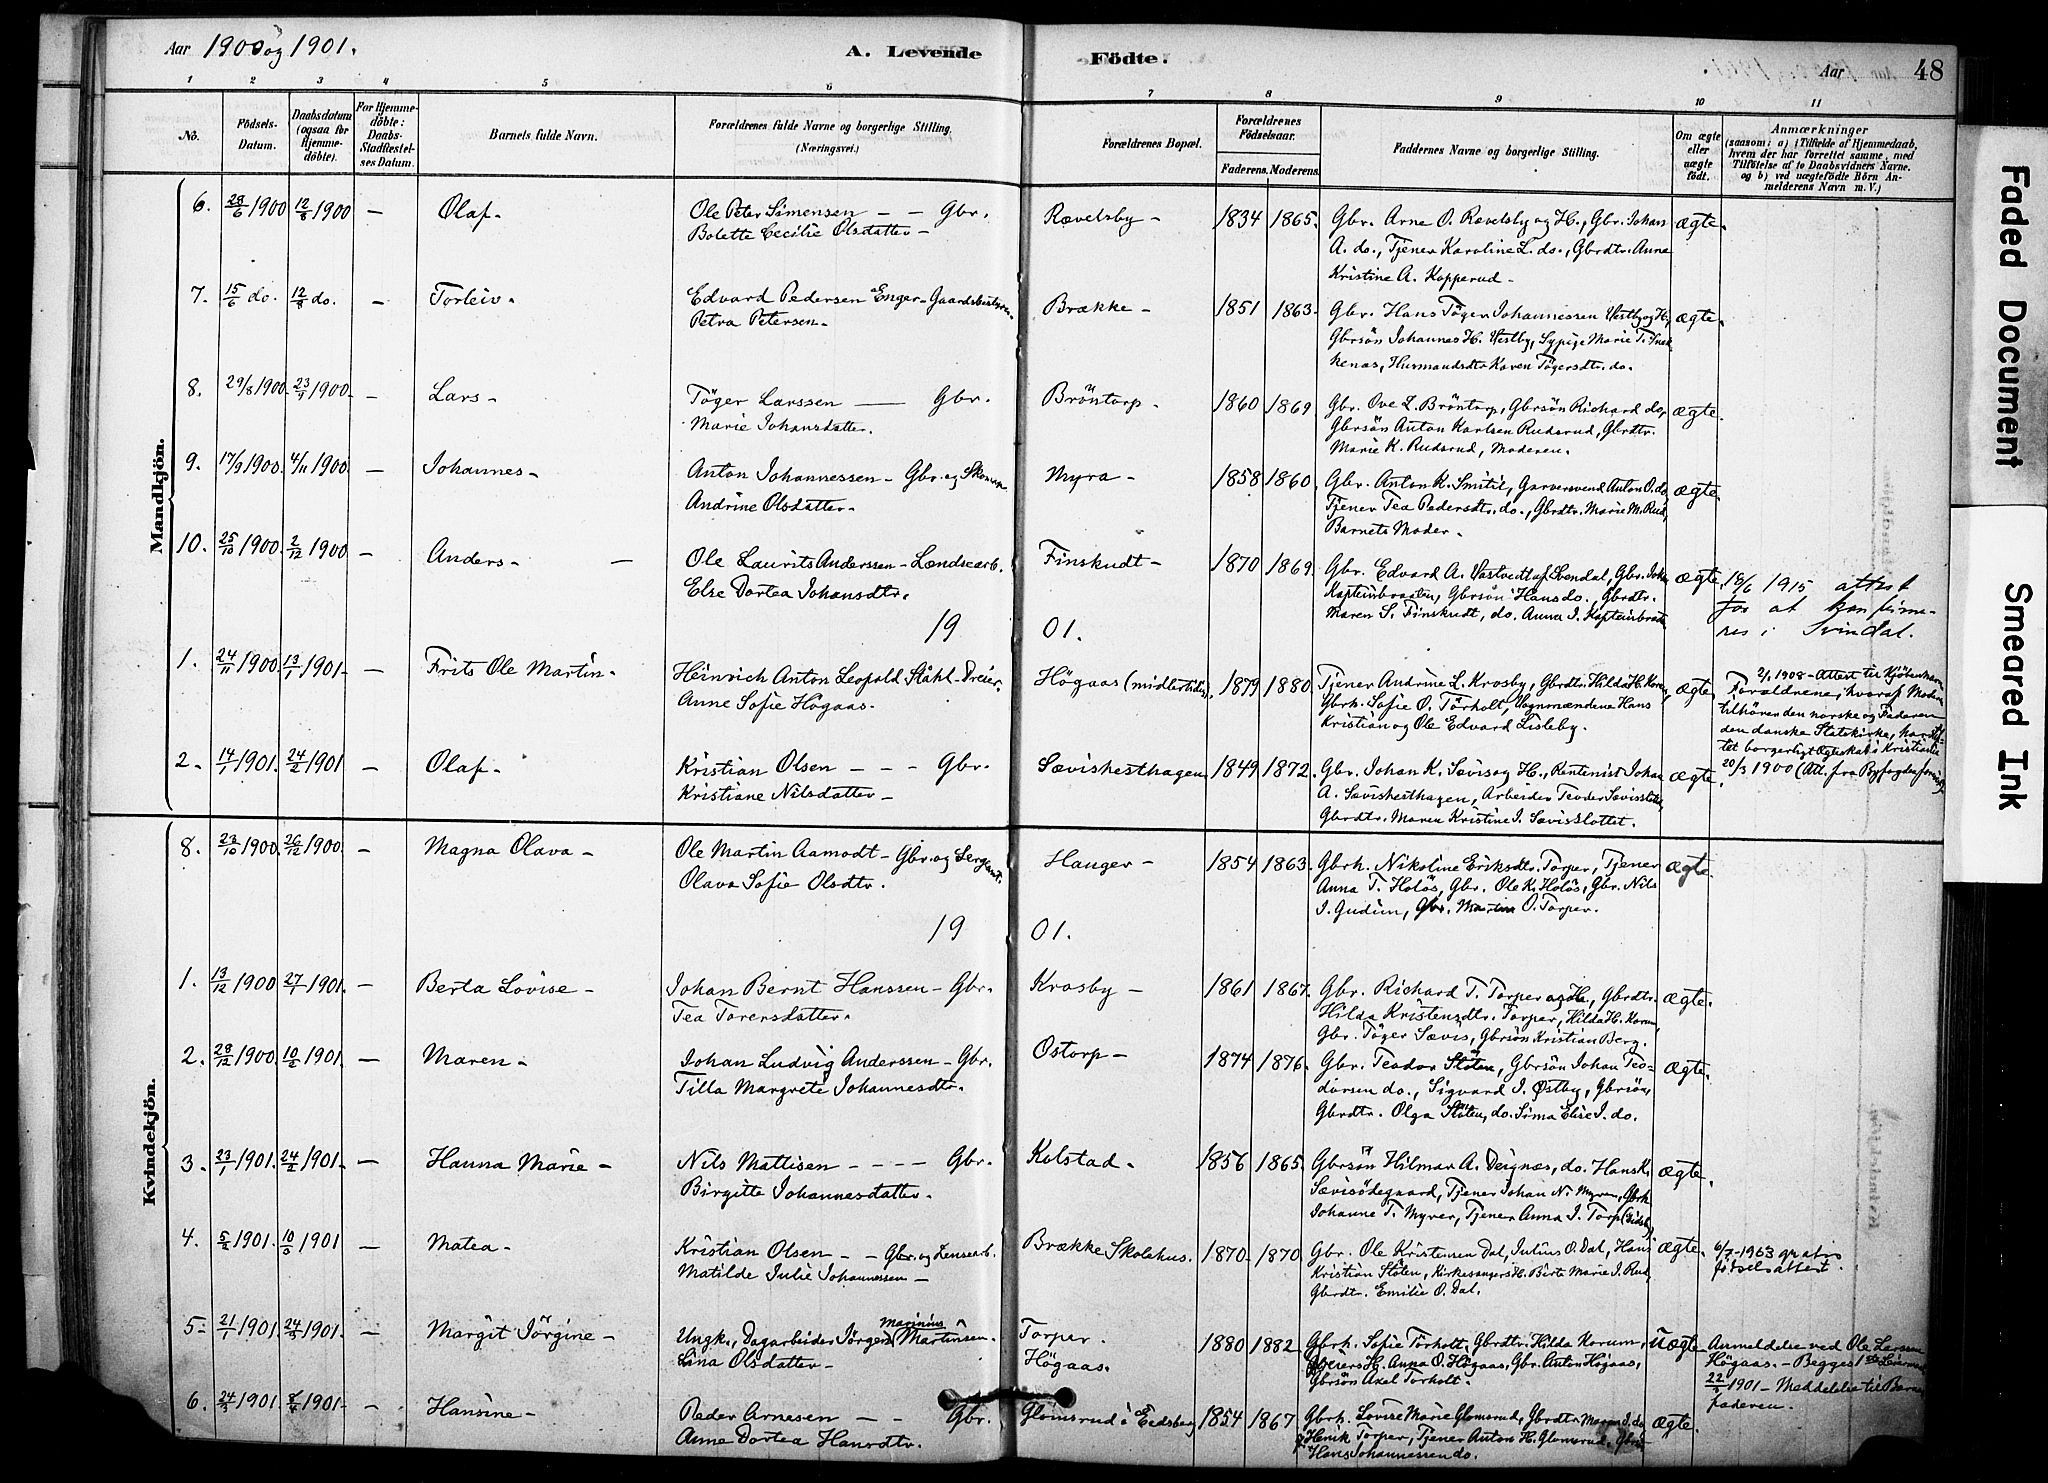 Aar 1900 og 1901. A. Levende Födte. Aar 48
1 2 3 4 5 6 7 8 9 10 11
No. Födsels-Datum. Daabsdatum (ogsaa for Hjemme-döbte). For Hjemme-döbte: Daabs-Stadfæstelses Datum. Barnets fulde Navn. Forældrenes fulde Navne og borgerlige Stilling. (Næringsvei.) Forældrenes Bopæl. Forældrenes Födselsaar. Faderens. Moderens. Faddernes Navne og borgerlige Stilling. Om ægte eller uægte født. Anmærkninger (saasom: a) i Tilfælde af Hjemmedaab, hvem der har forrettet samme, med Tilföielse af to Daabsvidners Navne, og b) ved uægtefödte Börn Anmelderens Navn m. V.)
Mandkjön.
6. 28/6 1900 12/8 1900 — Olaf- Ole Peter Simensen — — Gbr. Rævelsby — 1834 1865. Gbr. Arne O. Rævelsby og H., Gbr. Johan ægte.
Bolette Cecilie Olsdatter — A. do., Tjener Karoline L. do., Gbrdtr. Anna
Kristine A. Kopperud —
7. 15/6 do. 12/8 do. — Torleiv. Edvard Pedersen Enger — Gaardsbestyrer. Brække — 1851 1863. Gbr. Hans Töger Johannessen Vestby og H., ægte.
Petra Petersen — Gbrsön Johannes H. Vestby, Sypige Marie T.
kenæs, Husmandsdtr. Karen Tögersdtr. do.
8. 29/8 1900. 23/9 1900 — Lars — Töger Larssen — Gbr. Bröntorp — 1860 1869 Gbr. Ove L. Bröntorp, Gbrsön Richard do., ægte.
Marie Johansdatter. Gbrsön Anton Karlsen Rudsrud, Gbrdtr.
Marie K. Rudsrud, Moderen.
9. 17/9 1900. 4/11 1900. — Johannes — Anton Johannessen — Gbr. og Skomager Myra — 1858 1860. Gbr. Anton K. Smitil, Garversvend Anton O. do., ægte.
Andrine Olsdatter. Tjener Tea Pedersdtr. do., Gbrdtr. Marie M. Rud,
Barnets Moder.
10. 25/10 1900 2/12 1900 — Anders — Ole Laurits Anderssen — Lændsearb. Finskudt — 1870 1869. Gbr. Edvard A. Vastvedt af Svendal, Gbr. Joh. ægte. 18/6 1915 attest
Else Dortea Johansdtr. Kapteinbraaten, Gbrsön Hans do., Gbrdtr. for at konfirme-
Maren S. Finskudt, do. Anna I. Kapteinbraat. res i Svindal.
19 01.
1. 24/11 1900. 13/1 1901. — Frits Ole Martin — Heinrich Anton Leopold Ståhl — Dreier. Högaas (midlertidig). 1879 1880. Tjener Andrine L. Krosby, Gbrdtr. Hilda H. Korum, ægte. 2/1 1908 — Attest til Kjöbenhavn
Anne Sofie Högaas. Gbrk. Sofie O. Torholt, Sognemændene Hans Forældrene, hvoraf Moderen
Kristian og Ole Edvard Lisleby. tilhörer den norske og Faderen
den danske Statskirke, har stif-
2. 14/1 1901. 24/2 1901 — Olaf — Kristian Olsen — — — Gbr. Sævishesthagen 1849 1872. Gbr. Johan K. Sævis og H., Rentenist Johan ægte. tet borgerligt Ægteskab i Kristiania
Kristiane Nilsdatter — A. Sævishesthagen, Arbeider Teodor Sævisslottet, 20/3 1900 (Att. fra Byfogden forevist).
Gbrdtr. Maren Kristine I. Sævisslottet.
Kvindekjön.
8. 23/10 1900. 26/12 1900. — Magna Olava — Ole Martin Aamodt — Gbr. og Sergeant. Hauger — 1854 1863. Gbrk. Nikoline Eriksdtr. Torper, Tjener ægte.
Olava Sofie Olsdtr. Anna T. Holös, Gbr. Ole K. Holös, Gbr. Nils
I. Gudim, Gbr. Martin O. Torper.
19 01.
1. 13/12 1900 27/1 1901. — Berta Lovise — Johan Bernt Hanssen — Gbr. Krosby — 1861 1867. Gbr. Richard T. Torper og H., Gbrdtr. ægte.
Tea Torersdatter. Hilda Kristensdtr. Torper, Hilda H. Korum,
Gbr. Töger Sævis, Gbrsön Kristian Berg.
2. 28/12 1900. 10/2 1901. — Maren — Johan Ludvig Anderssen — Gbr. Ostorp — 1874 1876. Gbr. Teodor Slöten, Gbrsön Johan Teo- ægte.
Tilla Margrete Johannesdtr. dorsen do., Sigvard I. Østby, Gbrsön,
Gbrdtr. Olga Slöten, do. Sima Elise I. do.
3. 23/1 1901. 24/2 1901. — Hanna Marie — Nils Mattisen — — — Gbr. Kolstad — 1856 1865. Gbrsön Hilmar A. Deignæs, do. Hans K. ægte.
Birgitte Johannesdatter. Sævisödegaard, Tjener Johan N. Myren, Gbrk.
Johanne T. Myrer, Tjener Anna I. Torp (Eidsb.)
4. 5/2 1901. 10/3 1901 — Matea — Kristian Olsen — — Gbr. og Lensearb. Brække Skolehus. 1870. 1870 Gbr. Ole Kristensen Dal, Julius O. Dal, Hans ægte. 6/7-1963 gratis
Matilde Julie Johannessen — Kristian Slöten, Kirkesangers H. Berte Marie I. Rud, födselsattest.
Gbrdtr. Emilie O. Dal.
5. 21/1 1901. 24/3 1901. — Margit Jörgine — Ungk., Dagarbeider Jörgen Marinius Martinsen. Torper. 1880 1882. Gbrk. Sofie Torholt, Gbrdtr. Hilda Korum, Uægte. Anmeldelse ved Ole Larssen
Lina Olsdatter — Högaas. Dreiers H. Anna O. Högaas, Gbr. Anton Högaas, Högaas. — Begges 1ste Leiermaal
Gbrsön Axel Torholt. 22/3 1901 — Meddelelse til Barne-
faderen.
6. 24/3 1901. 8/4 1901. — Hansine — Peder Arnesen — — Gbr. Glomsrud i Eidsberg 1854 1867 Gbrk. Lovise Marie Glomsrud, Gbrdtr. Maren I. do. ægte.
Anne Dortea Hansdtr. Henrik Torper, Tjener Anton H. Glomsrud, Gbr.
Hans Johannessen do.
Faded Document
Smeared Ink